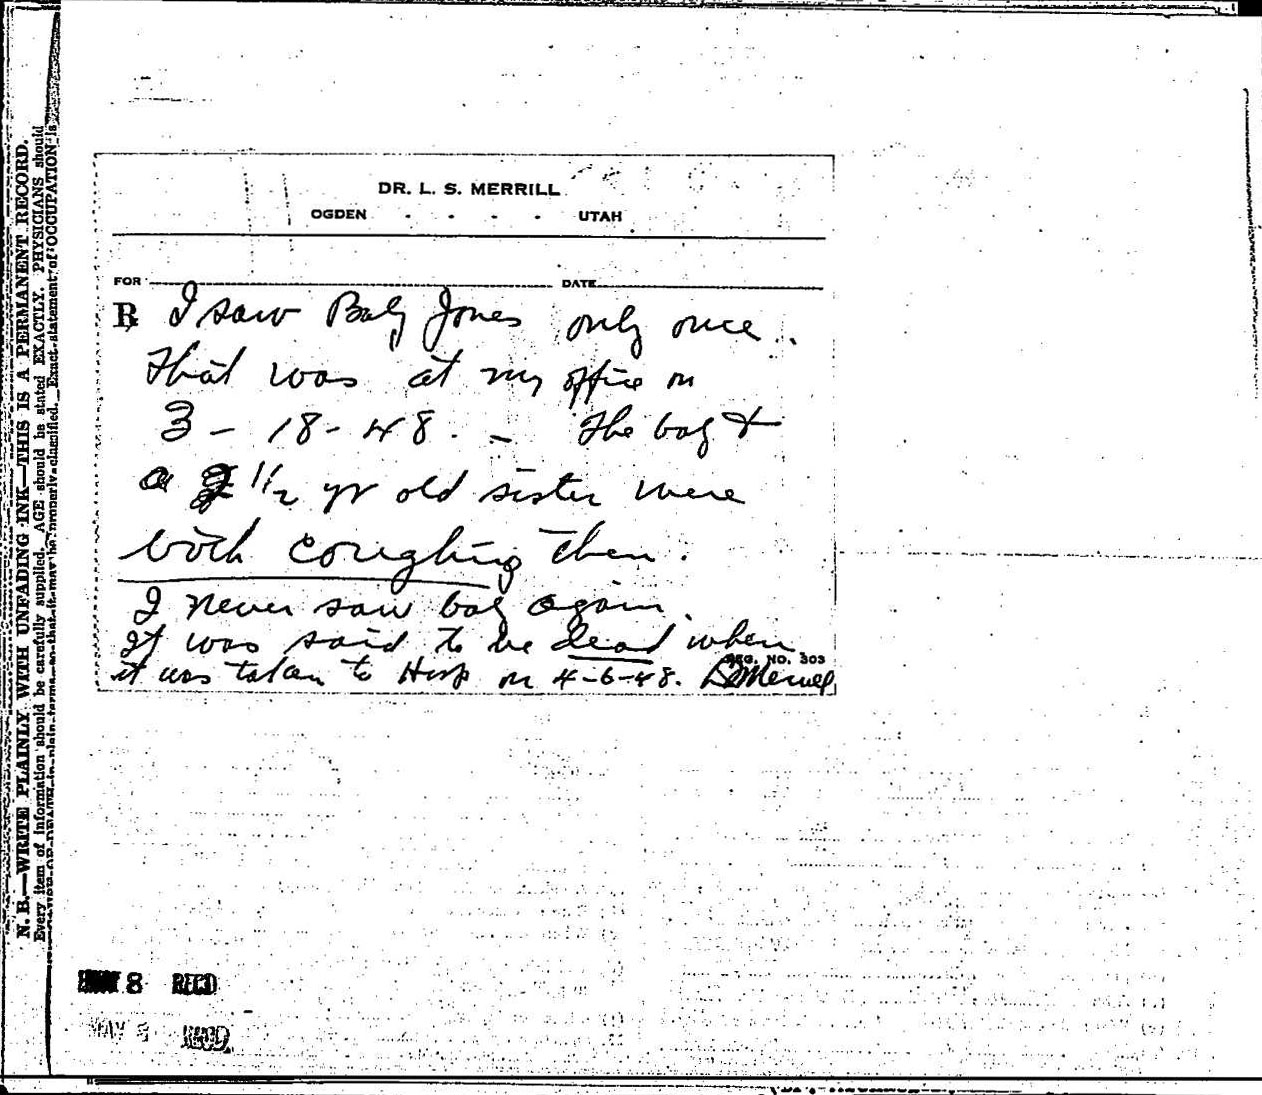 DR. L. S. MERRILL
OGDEN - - - - UTAH
FOR DATE
℞ I saw Baby Jones only once.
That was at my office on
3-18-48. - The baby &
a 1 1/2 yr old sister were
both coughing then.
I never saw baby again.
It was said to be dead when
REG. NO. 303
it was taken to Hosp on 4-6-48. LSMerrill
N. B.—WRITE PLAINLY WITH UNFADING INK—THIS IS A PERMANENT RECORD.
Every item of information should be carefully supplied. AGE should be stated EXACTLY. PHYSICIANS should
so that it may be properly classified. Exact statement of OCCUPATION is
8 REC'D
MAY REC'D